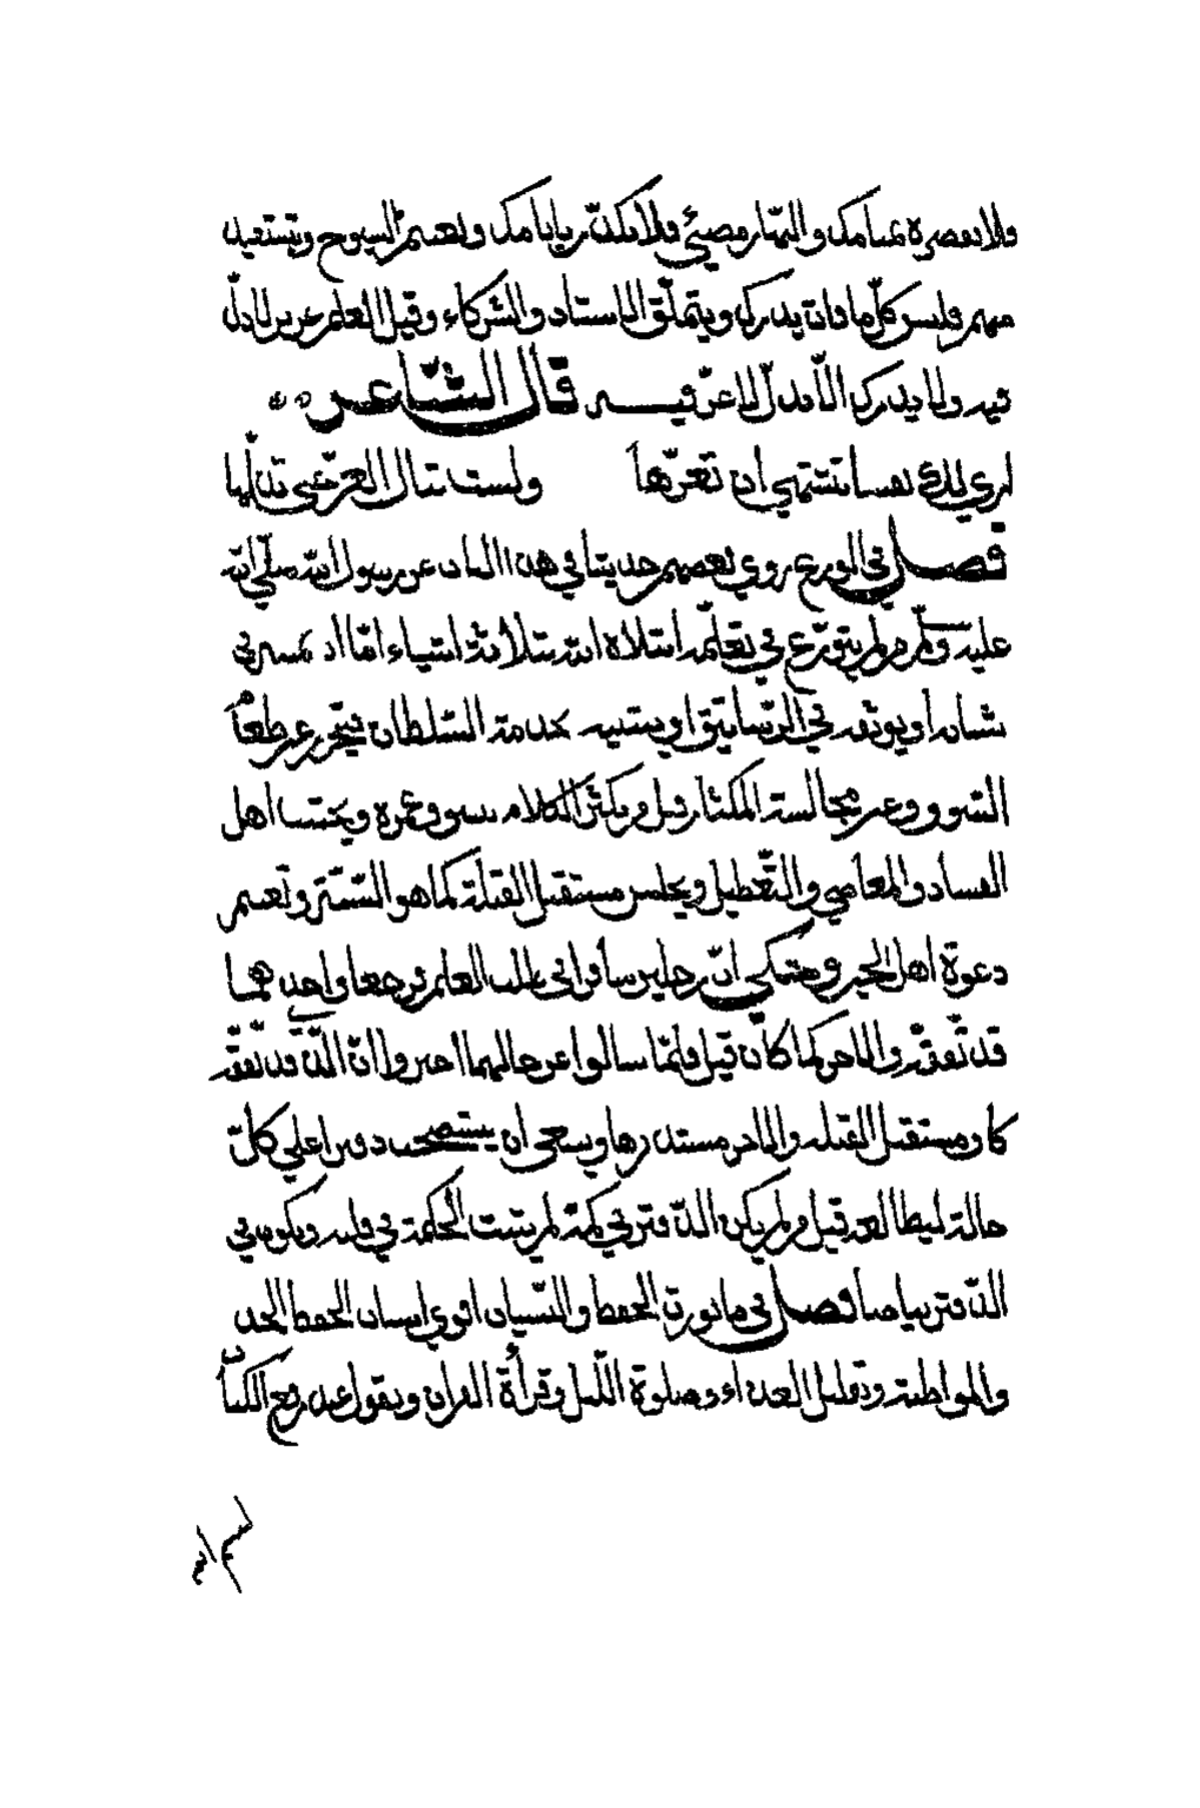 فلا تقصره بمنامك والنهار مضيئ فلا تكدّر باثامك وتغتنم الشيوخ وتستفيد
منهم فليس كلّ ما فات يدرك ويتملّق الاستاد والشركاء وقيل العلم عز بن لا ذلّ
فيه ولا يدرك الّا بذلّ لا عزّ فيه قال الشّاعر
اري لك نفسا تشتهي ان تعزّها ولست تنال العزّ حتي تذلّها
فصل في الورع روي بعضهم حديثا في هذا الباب عن رسول الله صلّي الله
عليه وسلّم من لم يتورّع في تعلّمه ابتلاه الله بثلاثة اشياء امّا ان يميته في
شبابه او يوقعه في الرّساتيق او يبتليه بخدمة السّلطان فيتحرز عن طعام
السوق وعن مجالسة المكثار قيل من يكثر الكلام يسرق عمره ويجتنب اهل
الفساد والمعاصي والتّعطيل ويجلس مستقبل القبلة كما هو السّنّة وتغتنم
دعوة اهل الخير وحكي انّ رجلين سافرا في طلب العلم فرجعا واحدهما
قد تفقّه والاخر كما كان قيل فلمّا سالوا عن حالهما اخبروا ان الذي قد تفقّه
كان مستقبل القبله والاخر مستدبرها وينبغي ان يستصحب دفترا علي كلّ
حالة ليطالعه قيل من لم يكن الدّفتر في كمّه لم يثبت الحكمة في قلبه ويكون في
الدّفتر بياضا فصل في ما يورث الحفظ والنّسيان اقوي اسباب الحفظ الجد
والمواظبة وتقليل الغداء وصلوة اللّيل وقرأة القران ويقول عند رفع الكتاب
بسم الله